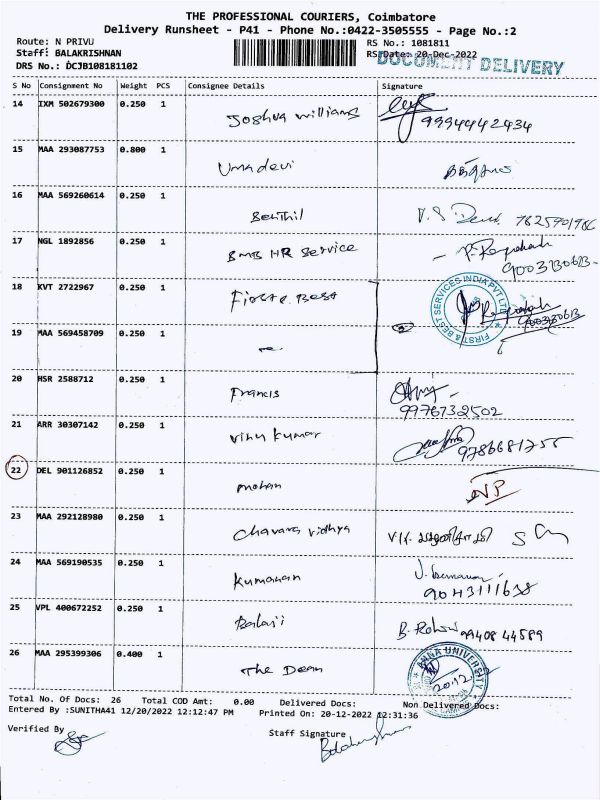 THE PROFESSIONAL COURIERS, Coimbatore
Delivery Runsheet - P41 - Phone No.:0422-3505555 - Page No.:2
Route: N PRIVU
RS No.: 1081811
Staff: BALAKRISHNAN
RS Date: 20-Dec-2022
DOCUMENT DELIVERY
DRS No.: DCJB108181102
S No Consignment No Weight PCS Consignee Details Signature
14 IXM 502679300 0.250 1 Joshva williams 9994442434
15 MAA 293087753 0.800 1 Umadevi
16 MAA 569260614 0.250 1 Senthil
17 NGL 1892856 0.250 1 BMB HR Service 9003130613
18 KVT 2722967 0.250 1 First & Best
FIRST & BEST SERVICES INDIA PVT LTD
19 MAA 569458709 0.250 1
20 HSR 2588712 0.250 1 Francis
9976732502
21 ARR 30307142 0.250 1 Vinu kumar
22 DEL 901126852 0.250 1 mohan NP
23 MAA 292128980 0.250 1 Chavara vidhya
24 MAA 569190535 0.250 1 Kumanan
9043111638
25 VPL 400672252 0.250 1 Balaji 9940844589
26 MAA 295399306 0.400 1 The Dean
ANNA UNIVERSITY
20.12
Total No. Of Docs: 26 Total COD Amt: 0.00 Delivered Docs: Non Delivered Docs:
Entered By :SUNITHA41 12/20/2022 12:12:47 PM Printed On: 20-12-2022 12:31:36
Verified By
Staff Signature